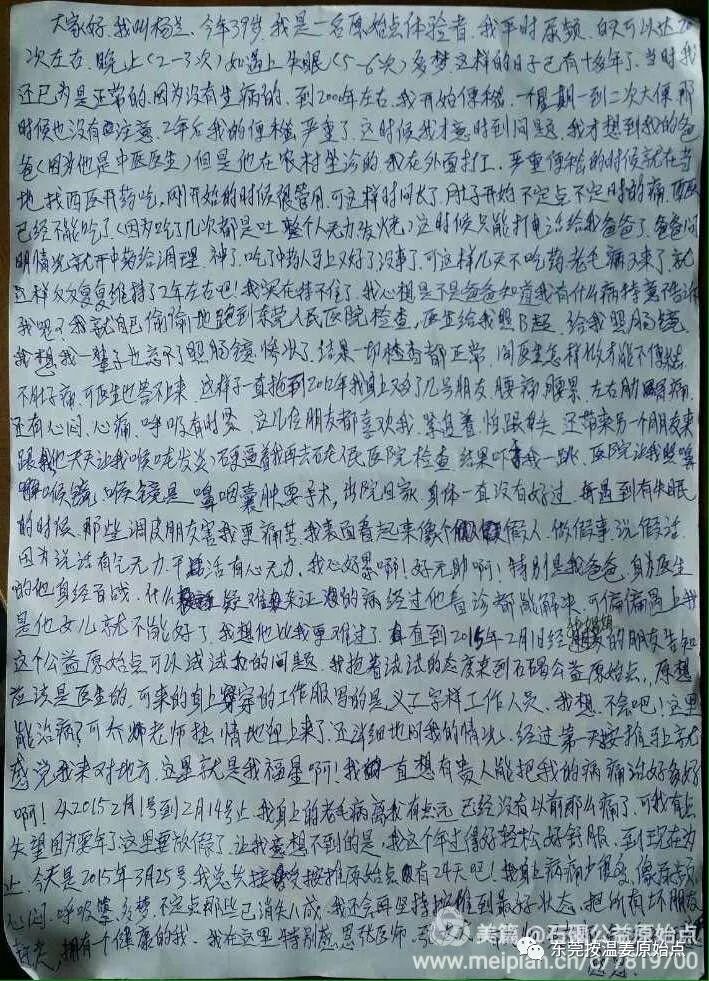 大家好.我叫杨兰、今年39岁.我是一名原始点体验者.我平时尿频.白天可以达20
次左右、晚上(2-3次)如遇上失眠(5-6次)多梦.这样的日子已有十多年了.当时我
还已为是正常的.因为没有生病的.到2000年左右.我开始便秘.一个星期一到二次大便那
时候也没有注意.2年后我的便秘严重了.这时候我才意时到问题.我才想到我的爸
爸(因为他是中医医生)但是他在农村坐诊的.我在外面打工.严重便秘的时候就在当
地.找西医开药吃.刚开始的时候很管用.可这样时间长了.肚子开始不定点不定时的痛.西医
已经不能吃了(因为吃了几次都是吐.整个人无力发烧)这时候只能打电话给我爸爸了.爸爸问
明情况就开中药给调理.神了.吃了中药人马上又好了没事了.可这样几天不吃药老毛病又来了.就
这样反反复复维持了2年左右吧!我实在持不住了.我心想是不是爸爸知道我有什么病特意不告诉
我呢?我就自己偷偷地跑到东莞人民医院检查.医生给我照B超.给我照肠镜.
我想我一辈子也忘不了照肠镜.惨状了.结果一切检查都正常.问医生怎样做才能不便秘.
不肚子痛.可医生也答不来.这样子一直拖到2012年我身上又多了几号朋友.腰痛.腰累.左右肋痛.
还有心闷.心痛.呼吸有时累.这几位朋友都喜欢我.紧追着.怕跟丢失.还带来另一个朋友来
跟我.他天天让我喉咙发炎.硬逼着我再去石龙人民医院检查.结果吓我一跳.医院让我照鼻
喉镜.喉镜是鼻咽囊肿要手术.出院回家.身体一直没有好过.再遇到有失眠
的时候.那些调皮朋友害我更痛苦.我表面看起来像个假人.做假事.说假话.
因为说话有气无力.干活有心无力.我心好累啊!好无助啊!特别是我爸爸.身为医生
的他身经百战.什么疑难杂症的病经过他看诊都能解决.可偏偏遇上我
是他女儿就不能好了.我想他比我更难过了.直到2015年2月1日经的朋友告知
这个公益原始点可以试试我的问题.我抱着试试的态度来到石碣公益原始点.原想
应该是医生的.可来的身上穿的工作服写的是义工字样工作人员.我想.不会吧!这里
能治病?可乔老师热情地迎上来了.还详细地问我的情况.经过第一天按推马上就
感觉我来对地方.这里就是我福星啊!我一直想有贵人能把我的病痛治好多好
啊!从2015 2月1号到2月14号止.我身上的老毛病离我有点远.已经没有以前那么痛了.可我有点
失望因为要过年了这里要放假了.让我意想不到的是.我这个年过得好轻松.好舒服.到现在为
止.今天是2015年3月25号.我总共接受按推原始点有24天吧!我身上病痛少很多.像尿频
心闷.呼吸累.多梦.不定点那些已消失八成.我还会再坚持按推到最好状态.把所有坏朋友
赶走.拥有一个健康的我.我在这里特别感恩张医师.
美篇@石碣公益原始点
东莞按温姜原始点